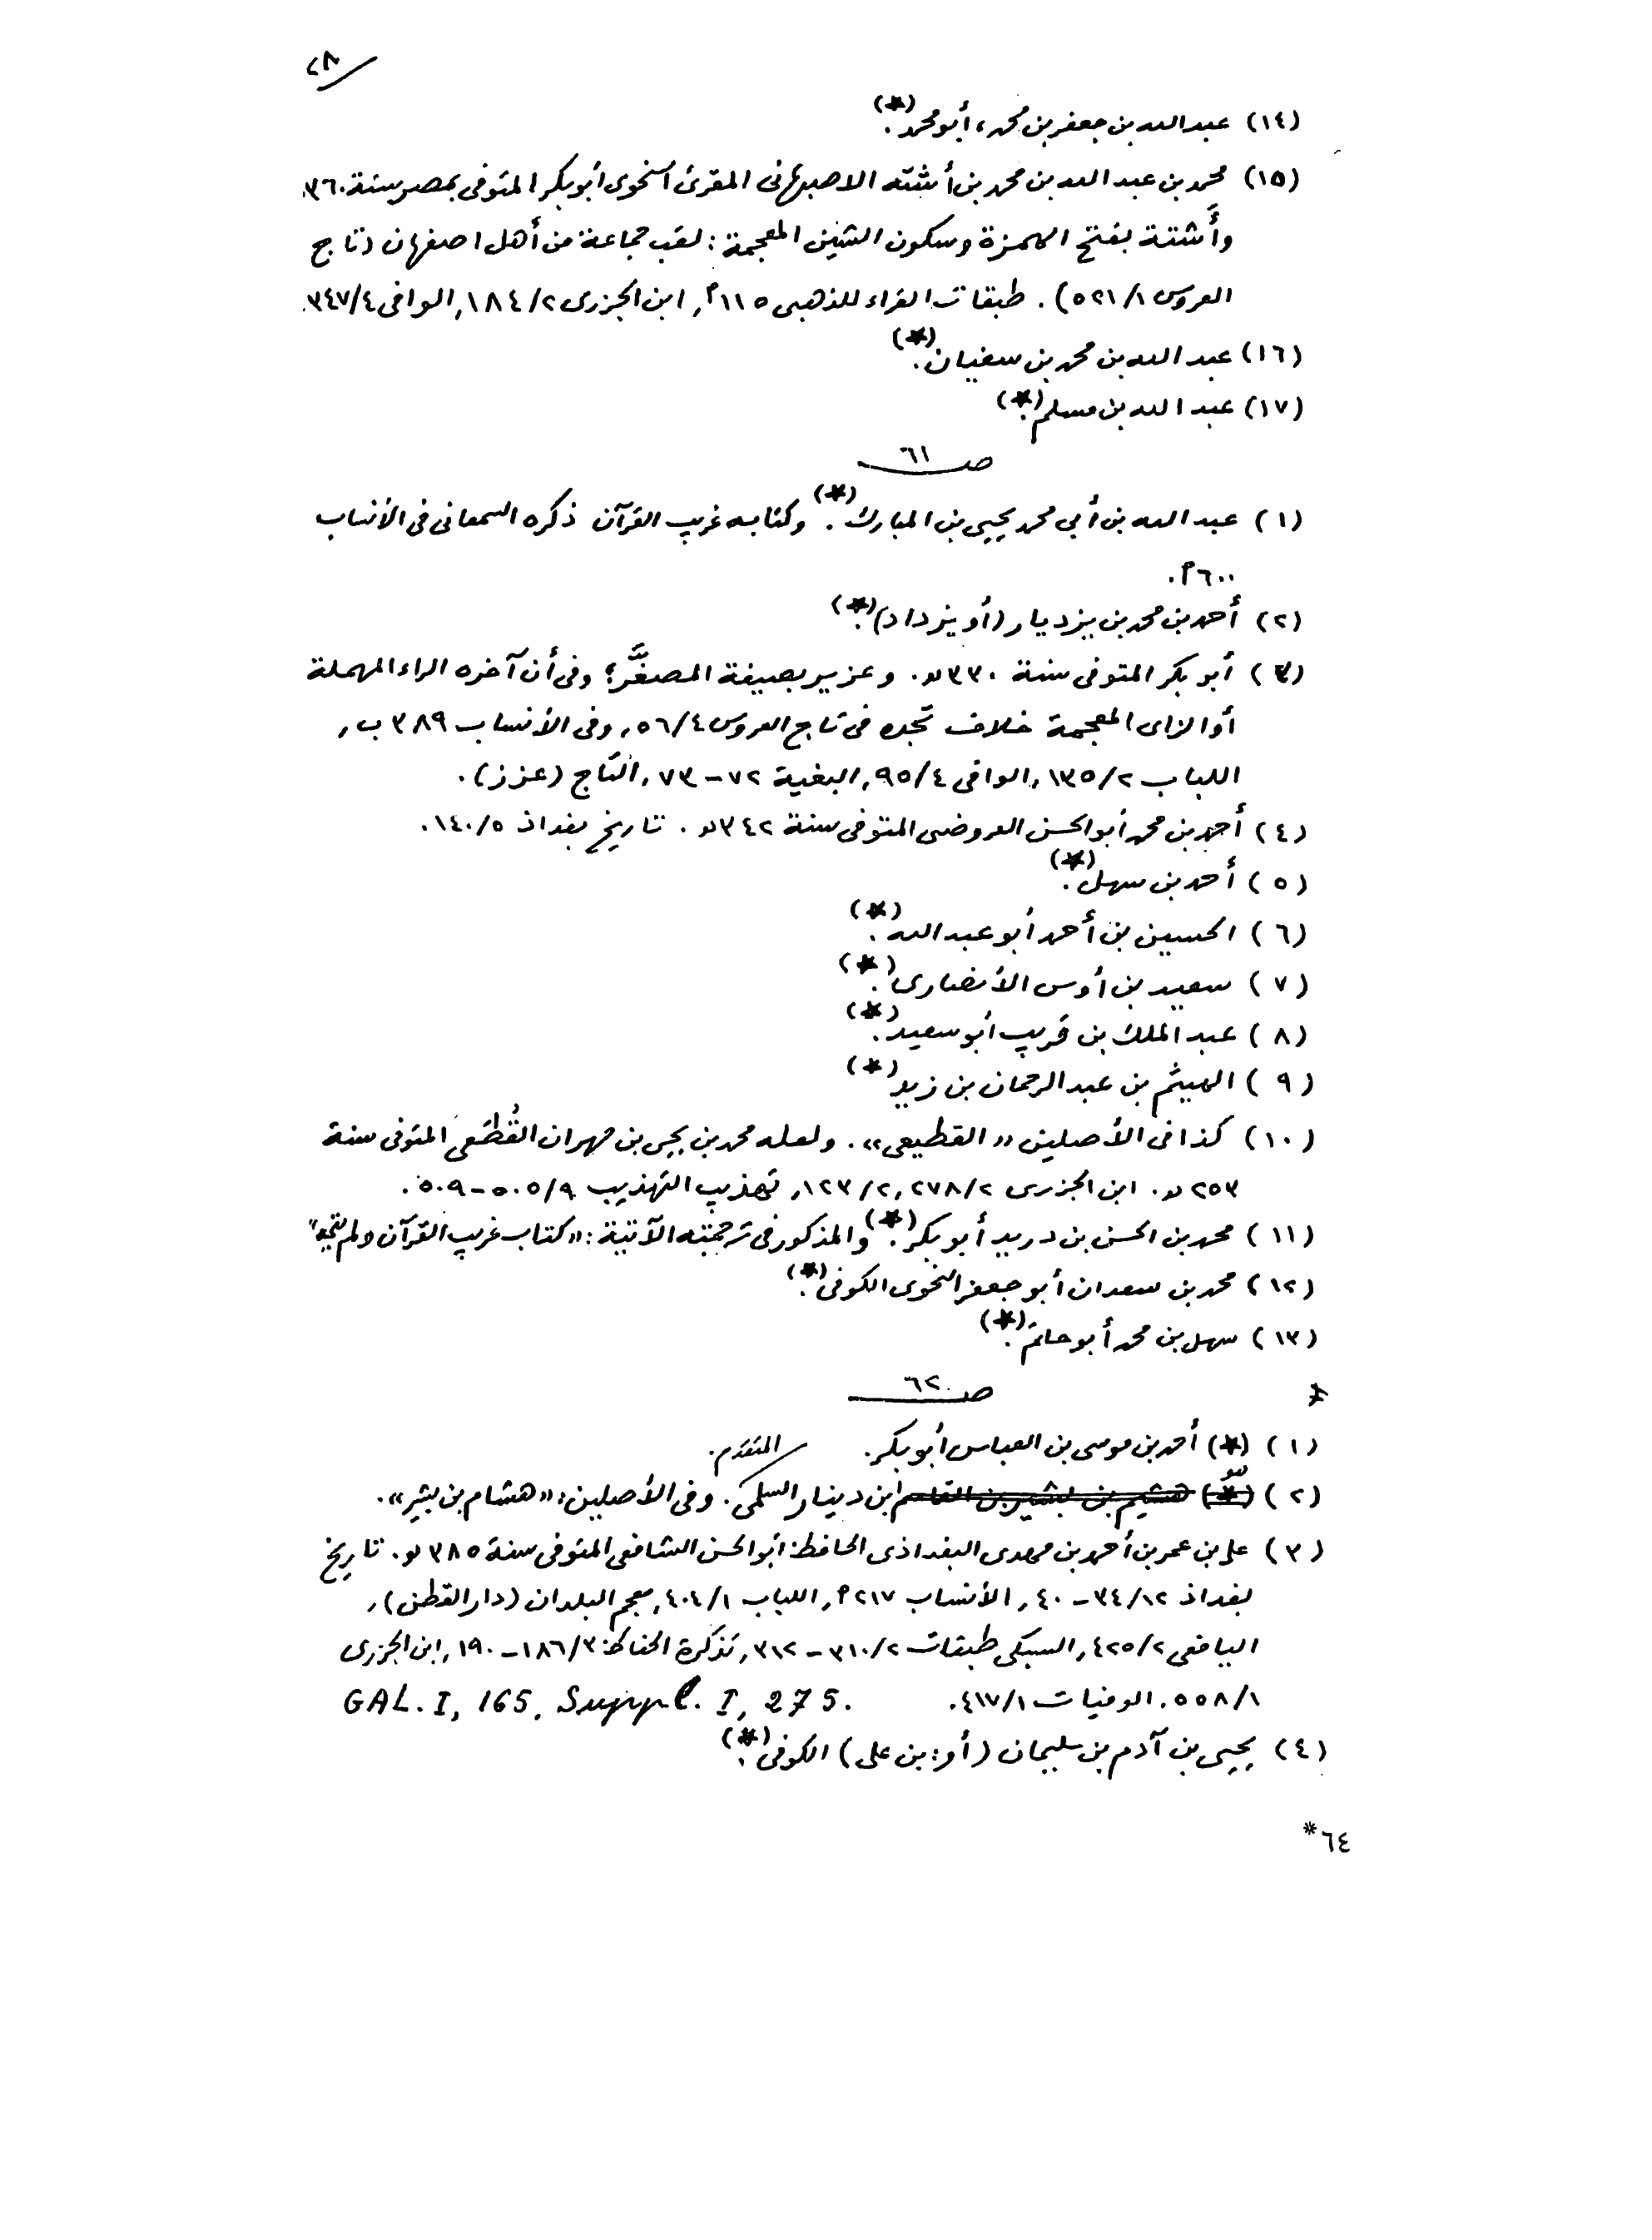 ٢٨
(١٤) عبد الله بن جعفر بن محمد، أبو محمد(*).
(١٥) محمد بن عبد الله بن محمد بن أشته الاصبهانى المقرئ النحوى أبو بكر المتوفى بمصر سنة ٣٦٠.
وأَشتة بفتح الهمزة وسكون الشين المعجمة: لقب جماعة من أهل اصفهان (تاج
العروس ٥٢١/١). طبقات القراء للذهبى ١١٥ م, ابن الجزرى ١٨٤/٢, الوافى ٣٤٧/٤.
(١٦) عبد الله بن محمد بن سفيان(*).
(١٧) عبد الله بن مسلم(*).
صـ ٦١
(١) عبد الله بن أبي محمد يحيى بن المبارك(*). وكتابه غريب القرآن ذكره السمعانى فى الأنساب
٦٠٠ م.
(٢) أحمد بن محمد بن يزديار (أو يزداد)(*).
(٣) أبو بكر المتوفى سنة ٣٣٠ هـ. وعزير بصيغة المصغَّر؛ وفى أن آخره الراء المهملة
أو الزاى المعجمة خلاف تجده فى تاج العروس ٥٦/٤, وفى الأنساب ٣٨٩ ب,
اللباب ١٣٥/٢, الوافى ٩٥/٤, البغية ٧٢-٧٣, التاج (عزز).
(٤) أحمد بن محمد أبو الحسن العروضى المتوفى سنة ٣٤٢ هـ. تاريخ بغداد ١٤٠/٥.
(٥) أحمد بن سهل(*).
(٦) الحسين بن أحمد أبو عبد الله(*).
(٧) سعيد بن أوس الأنصارى(*).
(٨) عبد الملك بن قريب أبو سعيد(*).
(٩) الهيثم بن عبد الرحمان بن زيد(*)
(١٠) كذا فى الأصلين «القطيعى». ولعله محمد بن يحيى بن مهران القُطَعى المتوفى سنة
٢٥٣ هـ. ابن الجزرى ٢٧٨/٢, ١٢٣/٢, تهذيب التهذيب ٥٠٥/٩-٥٠٩.
(١١) محمد بن الحسن بن دريد أبو بكر(*). والمذكور فى ترجمته الآتية: «كتاب غريب القرآن ولم يتمه»
(١٢) محمد بن سعدان أبو جعفر النحوى الكوفى(*).
(١٣) سهل بن محمد أبو حاتم(*).
صـ ٦٢
(١) (*) أحمد بن موسى بن العباس أبو بكر. المتقدم.
(٢) (*) هو هشيم بن بشير بن القاسم ابن دينار السلمى. وفى الأصلين: «هشام بن بشير».
(٣) على بن عمر بن أحمد بن مهدى البغداذى الحافظ أبو الحسن الشافعى المتوفى سنة ٣٨٥ هـ. تاريخ
بغداذ ٣٤/١٢-٤٠, الأنساب ٢١٧ م, اللباب ٤٠٤/١, معجم البلدان (دار القطن),
اليافعى ٤٢٥/٢, السبكى طبقات ٣١٠/٢-٣١٢, تذكرة الحفاظ ١٨٦/٣-١٩٠, ابن الجزرى
٥٥٨/١. الوفيات ٤١٧/١. GAL. I, 165, Suppl. I, 275.
(٤) يحيى بن آدم بن سليمان (أو: بن على) الكوفى(*).
٦٤*